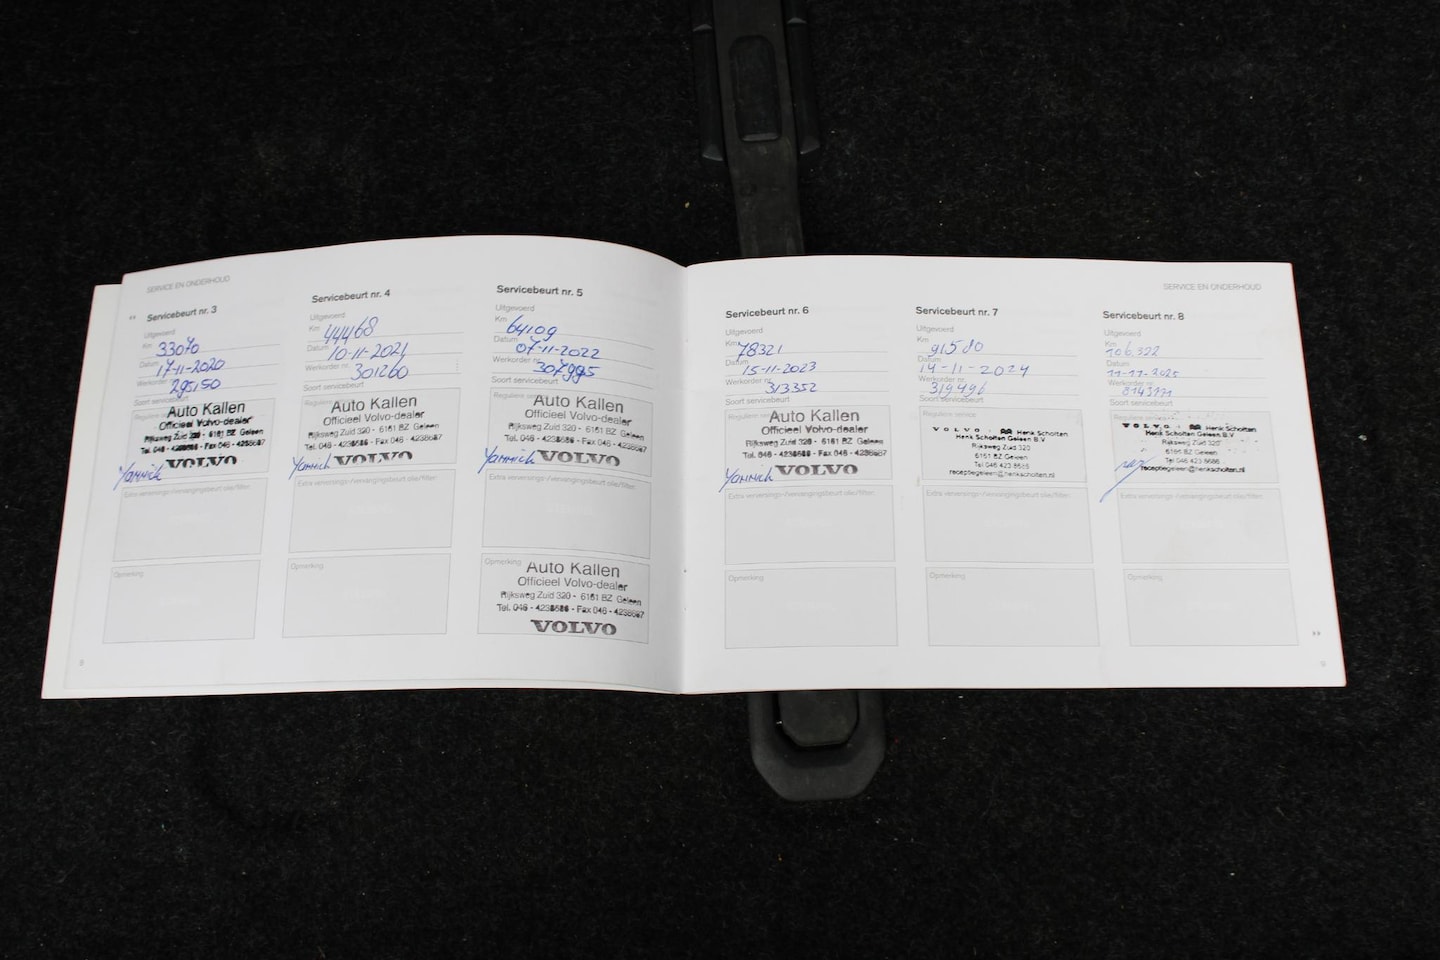 SERVICE EN ONDERHOUD
Servicebeurt nr. 3
Uitgevoerd
Km 33070
Datum 17-11-2020
Werkorder nr. 295150
Soort servicebeurt
Auto Kallen
Officieel Volvo-dealer
Rijksweg Zuid 320 - 6161 BZ Geleen
Tel. 046 - 4238686 - Fax 046 - 4238687
VOLVO
Yannick
Extra verversings-/vervangingsbeurt olie/filter:
Opmerking
Servicebeurt nr. 4
Uitgevoerd
Km 44468
Datum 10-11-2021
Werkorder nr. 301260
Soort servicebeurt
Auto Kallen
Officieel Volvo-dealer
Rijksweg Zuid 320 - 6161 BZ Geleen
Tel. 046 - 4238686 - Fax 046 - 4238687
VOLVO
Yannick
Extra verversings-/vervangingsbeurt olie/filter:
Opmerking
Servicebeurt nr. 5
Uitgevoerd
Km 64109
Datum 07-11-2022
Werkorder nr. 307995
Soort servicebeurt
Auto Kallen
Officieel Volvo-dealer
Rijksweg Zuid 320 - 6161 BZ Geleen
Tel. 046 - 4238686 - Fax 046 - 4238687
VOLVO
Yannick
Extra verversings-/vervangingsbeurt olie/filter:
Opmerking
Auto Kallen
Officieel Volvo-dealer
Rijksweg Zuid 320 - 6161 BZ Geleen
Tel. 046 - 4238686 - Fax 046 - 4238687
VOLVO
SERVICE EN ONDERHOUD
Servicebeurt nr. 6
Uitgevoerd
Km 78321
Datum 15-11-2023
Werkorder nr. 313352
Soort servicebeurt
Auto Kallen
Officieel Volvo-dealer
Rijksweg Zuid 320 - 6161 BZ Geleen
Tel. 046 - 4238686 - Fax 046 - 4238687
VOLVO
Yannick
Extra verversings-/vervangingsbeurt olie/filter:
Opmerking
Servicebeurt nr. 7
Uitgevoerd
Km 91580
Datum 14-11-2024
Werkorder nr. 319496
Soort servicebeurt
Reguliere service
VOLVO - Henk Scholten
Henk Scholten Geleen B.V
Rijksweg Zuid 320
6161 BZ Geleen
Tel 046 423 8686
receptiegeleen@henkscholten.nl
Extra verversings-/vervangingsbeurt olie/filter:
Opmerking
Servicebeurt nr. 8
Uitgevoerd
Km 106.322
Datum 11-11-2025
Werkorder nr.
Soort servicebeurt
VOLVO - Henk Scholten
Henk Scholten Geleen B.V
Rijksweg Zuid 320
6161 BZ Geleen
Tel 046 423 8686
receptiegeleen@henkscholten.nl
Extra verversings-/vervangingsbeurt olie/filter:
Opmerking